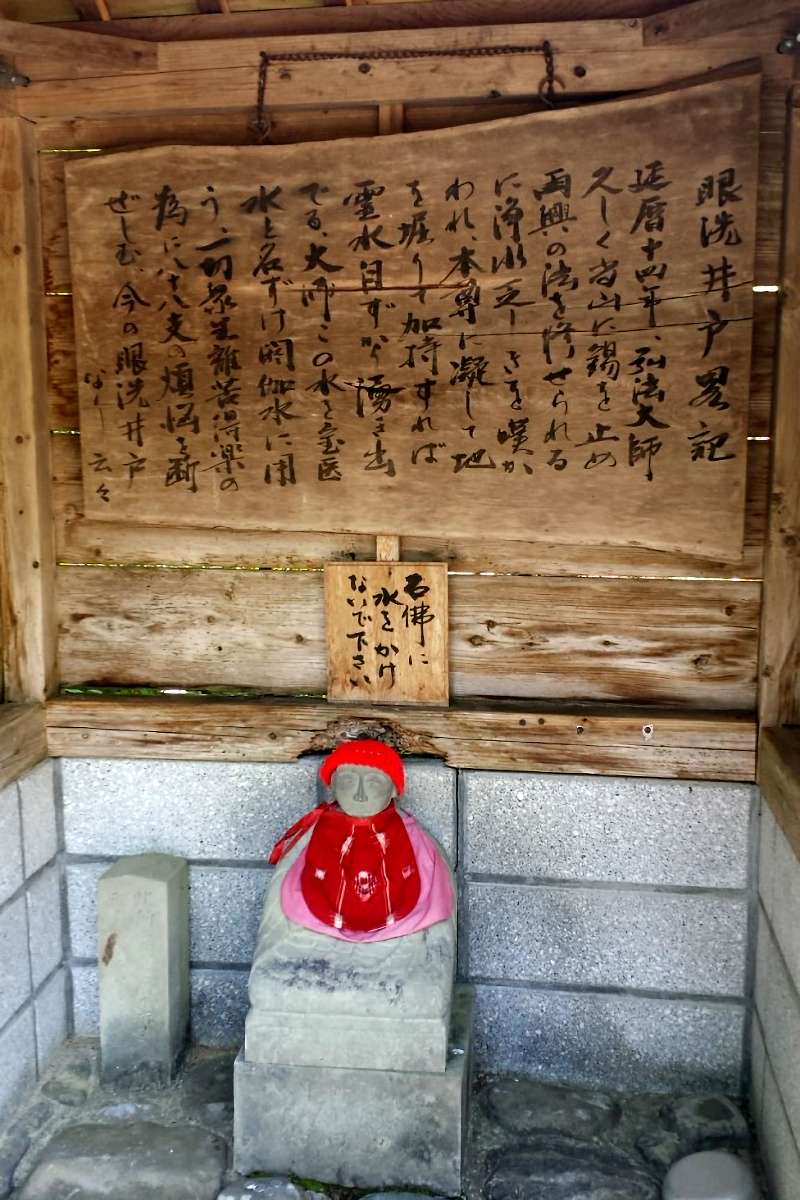 眼洗井戸畧記
延暦十四年、弘法大師
久しく当山に錫を止め
再興の法を修せられる
に浄水乏しきを嘆か
われ、本尊に凝して地
を堀りて加持すれば
霊水自ずから湧き出
でる、大師この水を金医
水と名ずけ閼伽水に用
う、一切衆生離苦得楽の
為に八十八支の煩悩を断
ぜしむ、今の眼洗井戸
なり 云々
石佛に
水をかけ
ないで下さい